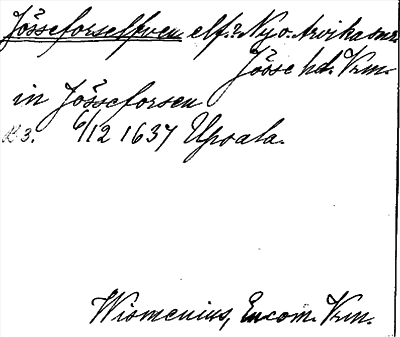 Jösseforselfven elf. i Ny o. Arvika snr.
Jösse hd. Vrm.
in Jösseforsen
N:3. 6/12 1637 Upsala.
Wismenius, Encom. Vrm.